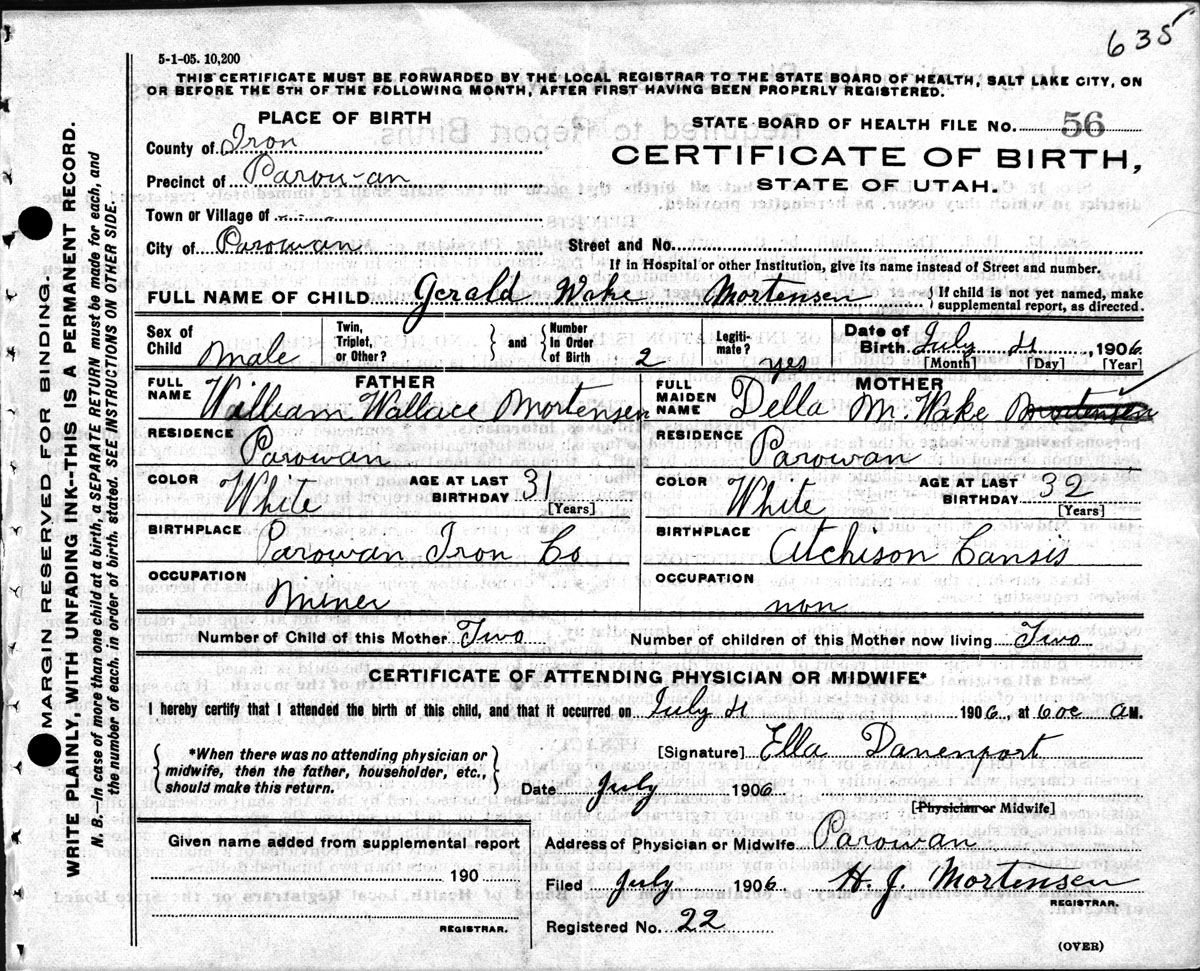 635
5-1-05. 10,200
THIS CERTIFICATE MUST BE FORWARDED BY THE LOCAL REGISTRAR TO THE STATE BOARD OF HEALTH, SALT LAKE CITY, ON
OR BEFORE THE 5TH OF THE FOLLOWING MONTH, AFTER FIRST HAVING BEEN PROPERLY REGISTERED.
PLACE OF BIRTH
STATE BOARD OF HEALTH FILE NO. 56
County of Iron
CERTIFICATE OF BIRTH,
Precinct of Parowan
STATE OF UTAH.
Town or Village of
City of Parowan Street and No.
If in Hospital or other Institution, give its name instead of Street and number.
FULL NAME OF CHILD Gerald Wake Mortensen { If child is not yet named, make supplemental report, as directed.
Sex of Child Male Twin, Triplet, or Other? } and { Number In Order of Birth 2 Legitimate? yes Date of Birth July , 1906
[Month] [Day] [Year]
FATHER MOTHER
FULL NAME William Wallace Mortensen FULL MAIDEN NAME Della M. Wake
RESIDENCE Parowan RESIDENCE Parowan
COLOR White AGE AT LAST BIRTHDAY 31 [Years] COLOR White AGE AT LAST BIRTHDAY 32 [Years]
BIRTHPLACE Parowan Iron Co BIRTHPLACE Atchison Cansis
OCCUPATION Miner OCCUPATION non
Number of Child of this Mother Two Number of children of this Mother now living Two
CERTIFICATE OF ATTENDING PHYSICIAN OR MIDWIFE*
I hereby certify that I attended the birth of this child, and that it occurred on July 1906, at 6 oc AM.
{ *When there was no attending physician or midwife, then the father, householder, etc., should make this return. }
[Signature] Ella Davenport
Date July 1906
[Physician or Midwife]
Given name added from supplemental report
Address of Physician or Midwife Parowan
190
Filed July 1906 H. J. Mortensen
REGISTRAR.
REGISTRAR.
Registered No. 22
(OVER)
MARGIN RESERVED FOR BINDING.
WRITE PLAINLY, WITH UNFADING INK--THIS IS A PERMANENT RECORD.
N. B.--In case of more than one child at a birth, a SEPARATE RETURN must be made for each, and
the number of each, in order of birth, stated. SEE INSTRUCTIONS ON OTHER SIDE.